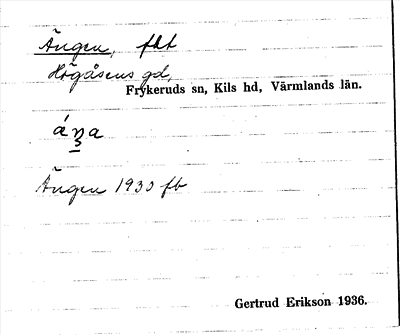 Ängen, fht
Högåsens gd,
Frykeruds sn, Kils hd, Värmlands län.
Ängen 1930 fb
Gertrud Erikson 1936.